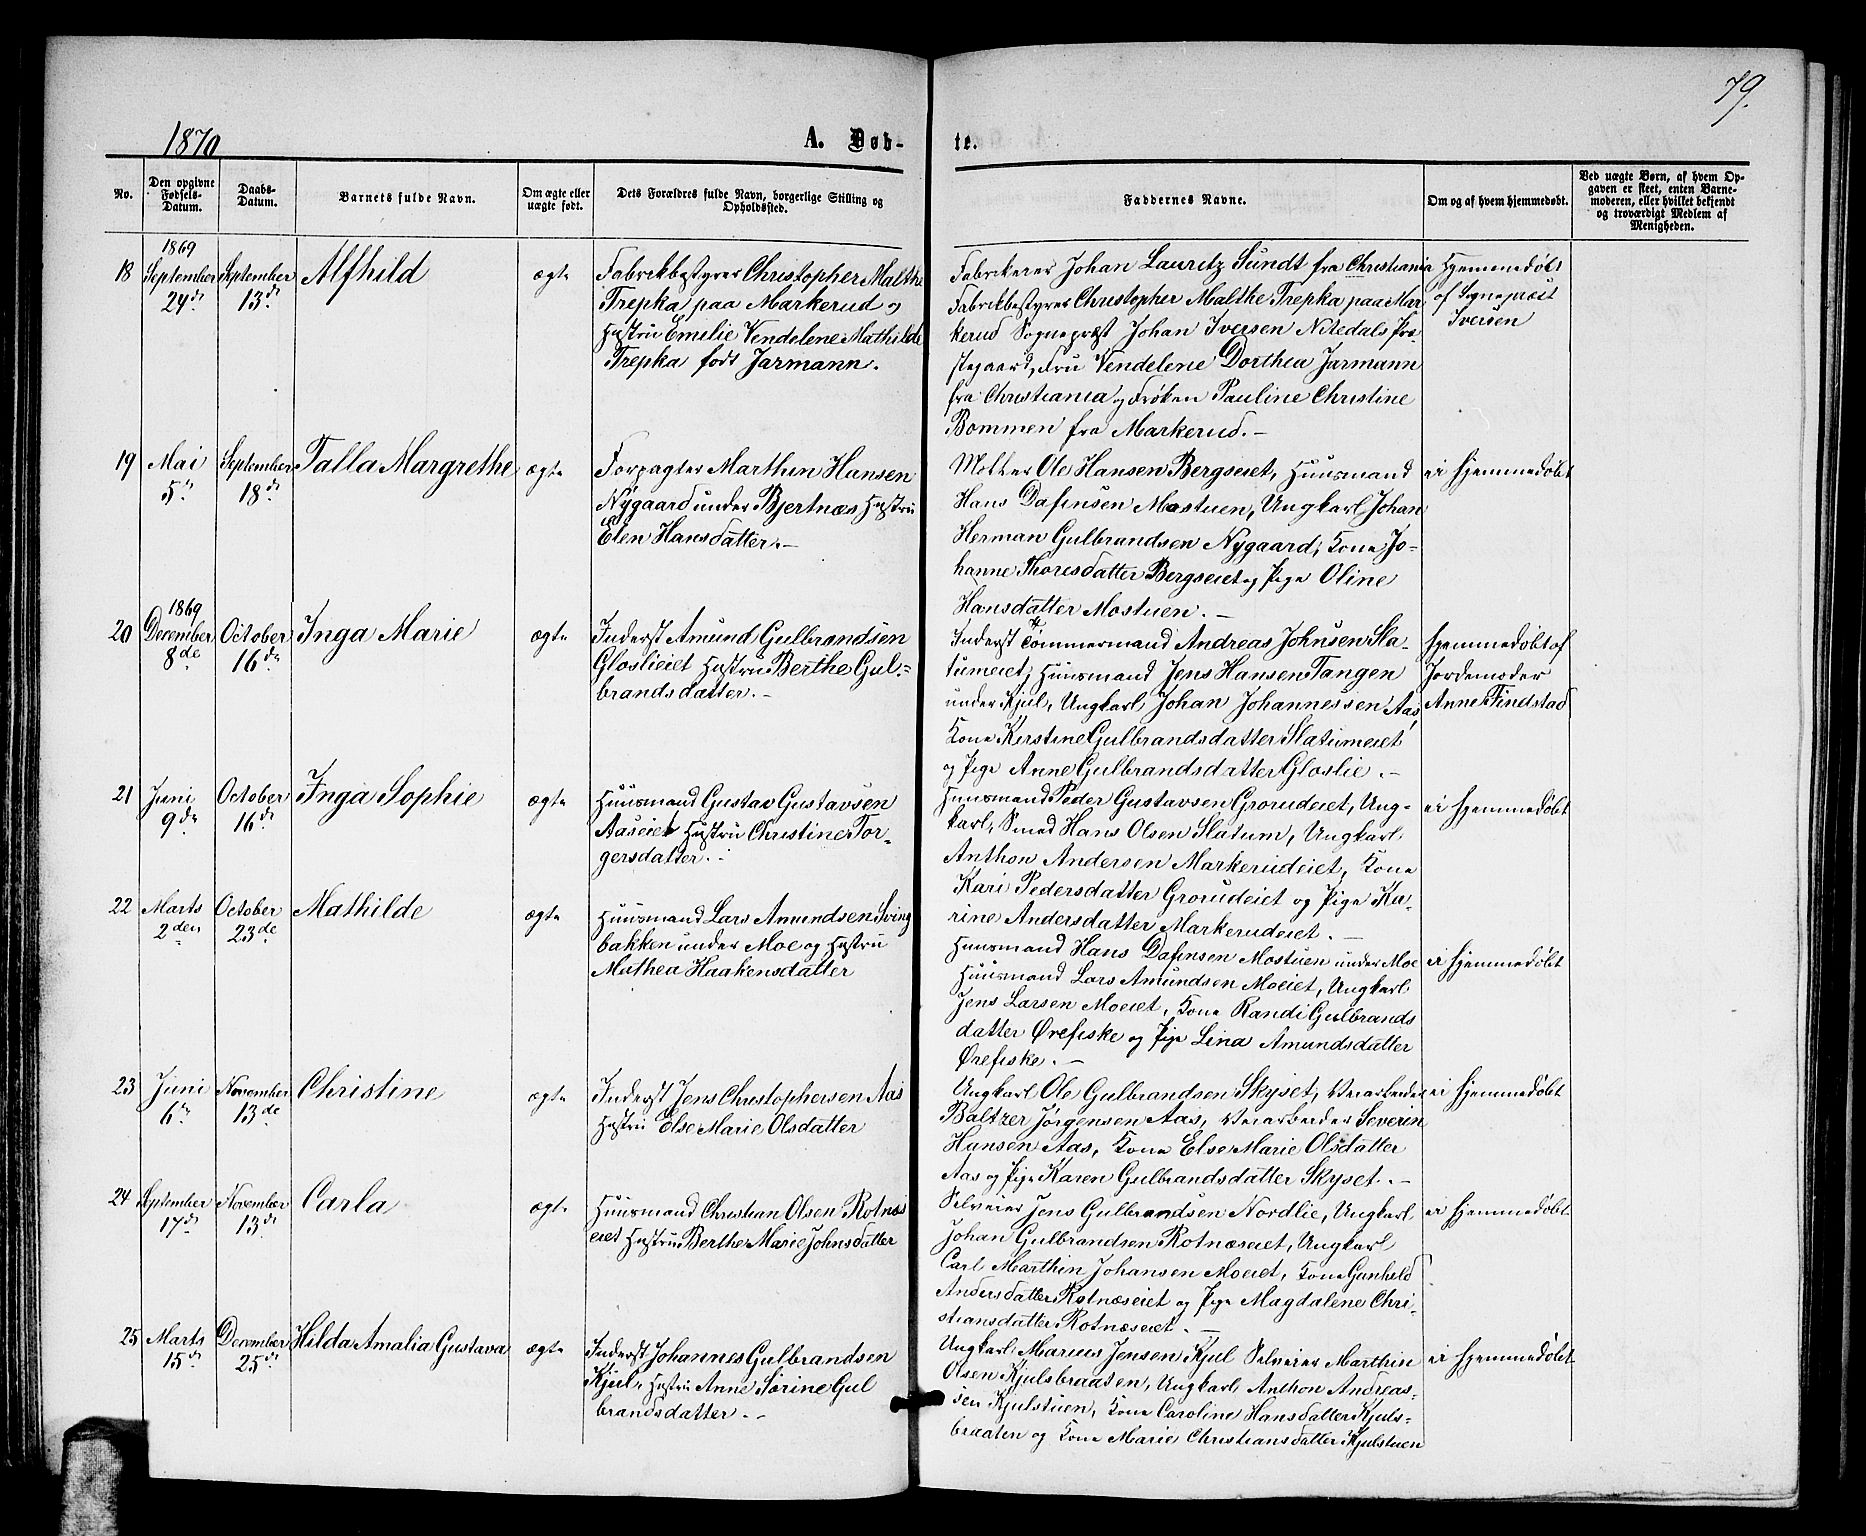 79.
1870
A. Døb-
te.
No.
Den opgivne Fødsels-Datum.
Daabs-Datum.
Barnets fulde Navn.
Om ægte eller uægte født.
Dets Forældres fulde Navn, borgerlige Stilling og Opholdssted.
Faddernes Navne.
Om og af hvem hjemmedøbt.
Ved uægte Børn, af hvem Opgaven er skeet, enten Barnemoderen, eller hvilket bekjendt og troværdigt Medlem af Menigheden.
18
1869
September
24de
September
13de
Alfhild
ægte
Fabrikbestyrer Christopher Malthe
Trepka paa Markerud og
Hustru Emilie Vendelene Mathilde
Trepka født Jarmann.
Fabrikeier Johan Lauritz Sundt fra Christiania
Fabrikbestyrer Christopher Malthe Trepka paa Mar
kerud Sognepræst Johan Iversen Nitedals Præ-
stegaard, Fru Vendelene Dorthea Jarmann
fra Christiania og Frøken Pauline Christine
Bommen fra Markerud.-
Hjemmedøbt
af Sognepræst
Iversen
19
Mai
5te
September
18de
Talla Margrethe
ægte
Forpagter Marthin Hansen
Nygaard under Bjertnæs Hustru
Elen Hansdatter.-
Møller Ole Hansen Bergseiet, Huusmand
Hans Dafinsen Mostuen, Ungkarl Johan
Herman Gulbrandsen Nygaard, Kone Jo-
hanne Thoresdatter Bergseiet og Pige Oline
Hansdatter Mostuen.-
ei hjemmedøbt
20
1869
December
8de
October
16de
Inga Marie
ægte
Inderst Amund Gulbrandsen
Gloslieiet Hustru Berthe Gul-
brandsdatter.-
Inderst Tømmermand Andreas Johnsen Sla-
tumeiet, Huusmand Jens Hansen Tangen
under Kjul, Ungkarl Johan Johannessen Aas,
Kone Kerstine Gulbrandsdatter Slatumeiet
og Pige Anne Gulbrandsdatter Gloslie.-
Hjemmedøbt af
Jordemoder
Anne Findstad
21
Juni
9de
October
16de
Inga Sophie
ægte
Huusmand Gustav Gustavsen
Aaseiet Hustru Christine Tor-
gersdatter.-
Huusmand Peder Gustavsen Grorudeiet, Ung-
karl, Smed Hans Olsen Slatum, Ungkarl
Anthon Andersen Markerudeiet, Kone
Kari Pedersdatter Grorudeiet og Pige Ka-
rine Andersdatter Markerudeiet.-
ei hjemmedøbt
22
Marts
2den
October
23de
Mathilde
ægte
Huusmand Lars Amundsen Sving
bakken under Moe og Hustru
Mathea Haakensdatter
Huusmand Hans Dafinsen Mostuen under Moe
Huusmand Lars Amundsen Moeiet, Ungkarl
Jens Larsen Moeiet, Kone Randi Gulbrands
datter Ørefiske og Pige Lina Amundsdatter
Ørefiske.-
ei hjemmedøbt
23
Juni
6te
November
13de
Christine
ægte
Inderst Jens Christophersen Aas
Hustru Else Marie Olsdatter
Ungkarl Ole Gulbrandsen Skyset, Veiarbeider
Baltzer Jørgensen Aas, Veiarbeider Severin
Hansen Aas, Kone Else Marie Olsdatter
Aas og Pige Karen Gulbrandsdatter Skyset.-
ei hjemmedøbt
24
September
17de
November
13de
Carla
ægte
Huusmand Christian Olsen Rotnæs
eiet Hustru Berthe Marie Johnsdatter
Selveier Jens Gulbrandsen Nordlie, Ungkarl
Johan Gulbrandsen Rotnæseiet, Ungkarl
Carl Marthin Johansen Moeiet, Kone Gunhild
Andersdatter Rotnæseiet og Pige Magdalene Chri-
stiansdatter Rotnæseiet.-
ei hjemmedøbt
25
Marts
15de
December
25de
Hilda Amalia Gustava
ægte
Inderst Johannes Gulbrandsen
Kjul, Hustru Anne Sørine Gul
brandsdatter.-
Ungkarl Marius Jensen Kjul Selveier Marthin
Olsen Kjulsbraaten, Ungkarl Anthon Andreas-
sen Kjulstuen, Kone Caroline Hansdatter Kjuls-
braaten og Kone Marie Christiansdatter Kjulstuen
ei hjemmedøbt